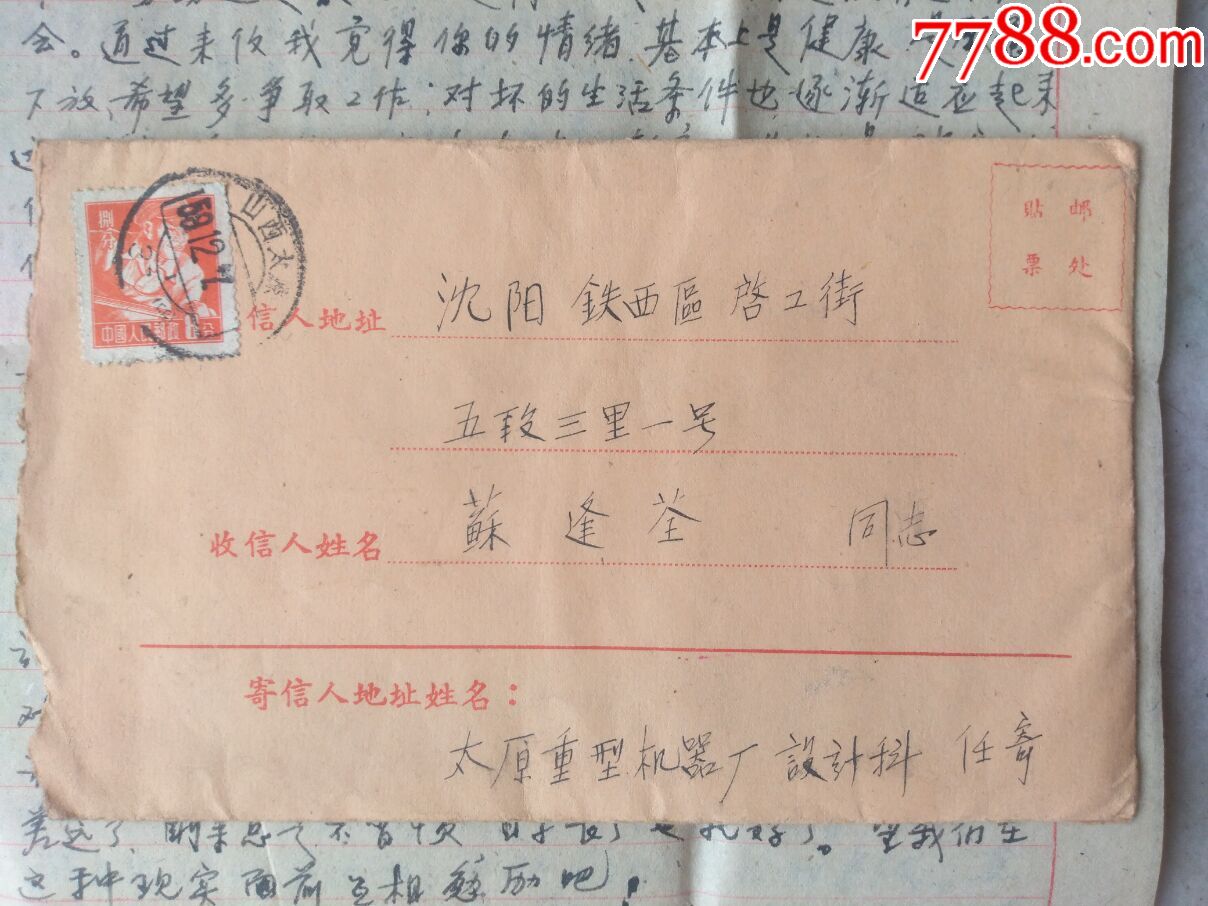 会。通过来信我觉得你的情绪基本上是健康
7788.com
下放,希望多争取工作,对坏的生活条件也逐渐适应起来
捌分
中國人民郵政
58.12
山西太原
贴 邮
票 处
信人地址 沈阳 鉄西區 啓工街
五段三里一号
收信人姓名 蘇 逢 荃 同志
寄信人地址姓名：
太原重型机器厂 設計科 任寄
差远了
这种现实面前互相勉励吧！